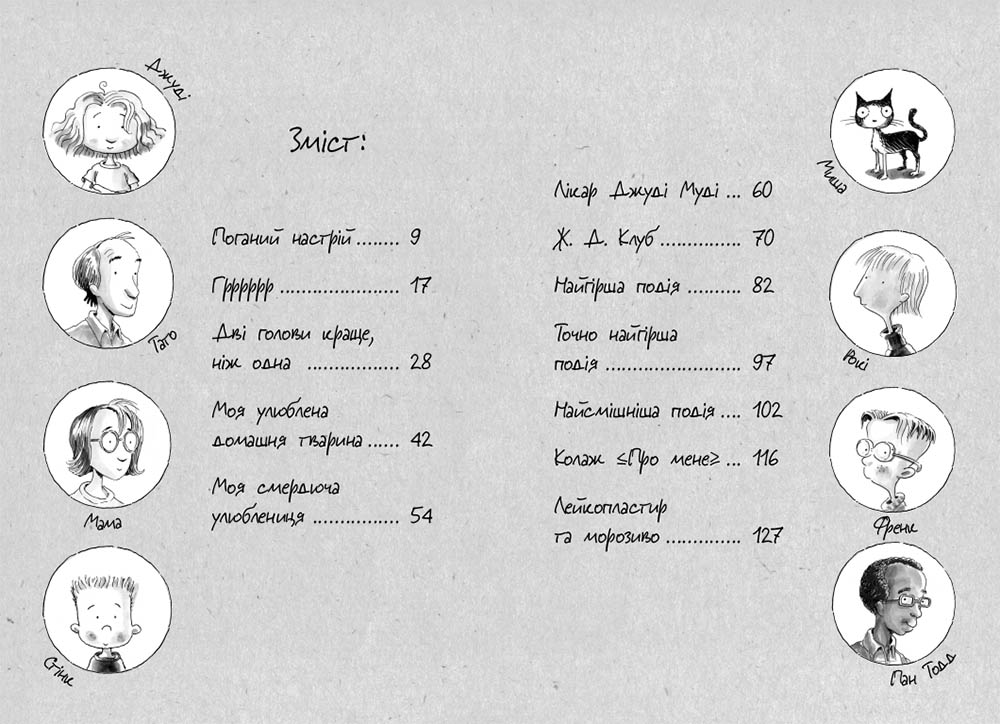 Джуді
Тато
Мама
Стінк
Зміст:
Поганий настрій........ 9
Грррррр ....................... 17
Дві голови краще,
ніж одна .................. 28
Моя улюблена
домашня тварина...... 42
Моя смердюча
улюблениця ................. 54
Лікар Джуді Муді ... 60
Ж. Д. Клуб................ 70
Найгірша подія .......... 82
Точно найгірша
подія .......................... 97
Найсмішніша подія .... 102
Колаж ≤Про мене≥ ... 116
Лейкопластир
та морозиво .............. 127
Миша
Рокі
Френк
Пан Тодд